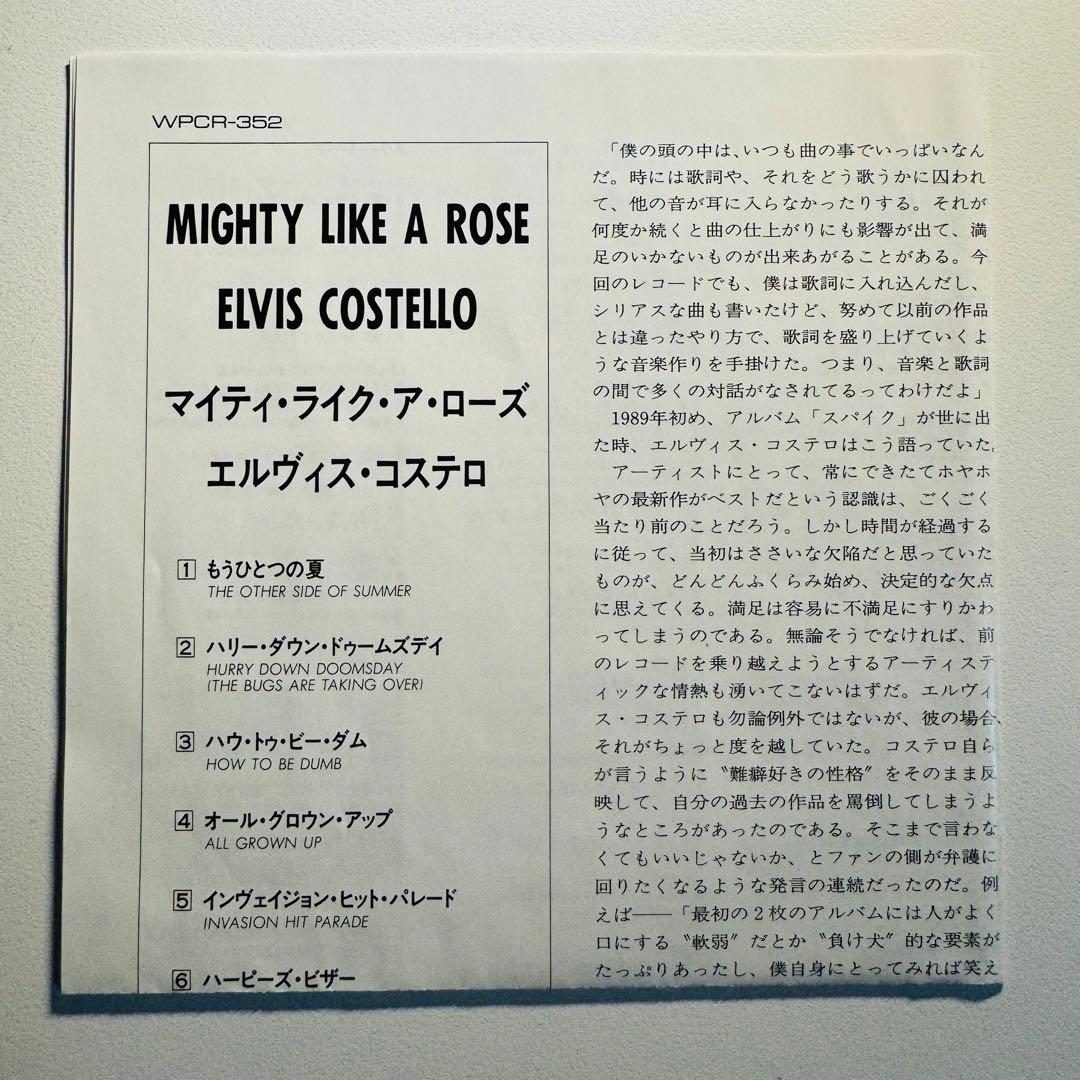 WPCR-352
MIGHTY LIKE A ROSE
ELVIS COSTELLO
マイティ・ライク・ア・ローズ
エルヴィス・コステロ
1 もうひとつの夏
THE OTHER SIDE OF SUMMER
2 ハリー・ダウン・ドゥームズデイ
HURRY DOWN DOOMSDAY
(THE BUGS ARE TAKING OVER)
3 ハウ・トゥ・ビー・ダム
HOW TO BE DUMB
4 オール・グロウン・アップ
ALL GROWN UP
5 インヴェイジョン・ヒット・パレード
INVASION HIT PARADE
6 ハーピーズ・ビザー
「僕の頭の中は、いつも曲の事でいっぱいなん
だ。時には歌詞や、それをどう歌うかに囚われ
て、他の音が耳に入らなかったりする。それが
何度か続くと曲の仕上がりにも影響が出て、満
足のいかないものが出来あがることがある。今
回のレコードでも、僕は歌詞に入れ込んだし、
シリアスな曲も書いたけど、努めて以前の作品
とは違ったやり方で、歌詞を盛り上げていくよ
うな音楽作りを手掛けた。つまり、音楽と歌詞
の間で多くの対話がなされてるってわけだよ」
1989年初め、アルバム「スパイク」が世に出
た時、エルヴィス・コステロはこう語っていた。
アーティストにとって、常にできたてホヤホ
ヤの最新作がベストだという認識は、ごくごく
当たり前のことだろう。しかし時間が経過する
に従って、当初はささいな欠陥だと思っていた
ものが、どんどんふくらみ始め、決定的な欠点
に思えてくる。満足は容易に不満足にすりかわ
ってしまうのである。無論そうでなければ、前
のレコードを乗り越えようとするアーティステ
ィックな情熱も湧いてこないはずだ。エルヴィ
ス・コステロも勿論例外ではないが、彼の場合、
それがちょっと度を越していた。コステロ自ら
が言うように〝難癖好きの性格〟をそのまま反
映して、自分の過去の作品を罵倒してしまうよ
うなところがあったのである。そこまで言わな
くてもいいじゃないか、とファンの側が弁護に
回りたくなるような発言の連続だったのだ。例
えば――「最初の２枚のアルバムには人がよく
口にする〝軟弱〟だとか〝負け犬〟的な要素が
たっぷりあったし、僕自身にとってみれば笑え